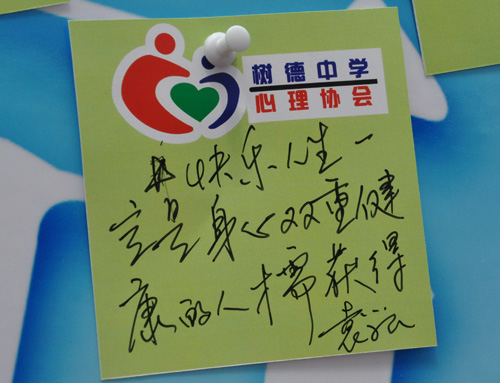 树德中学
心理协会
快乐人生一
定是身心双重健
康的人才能获得